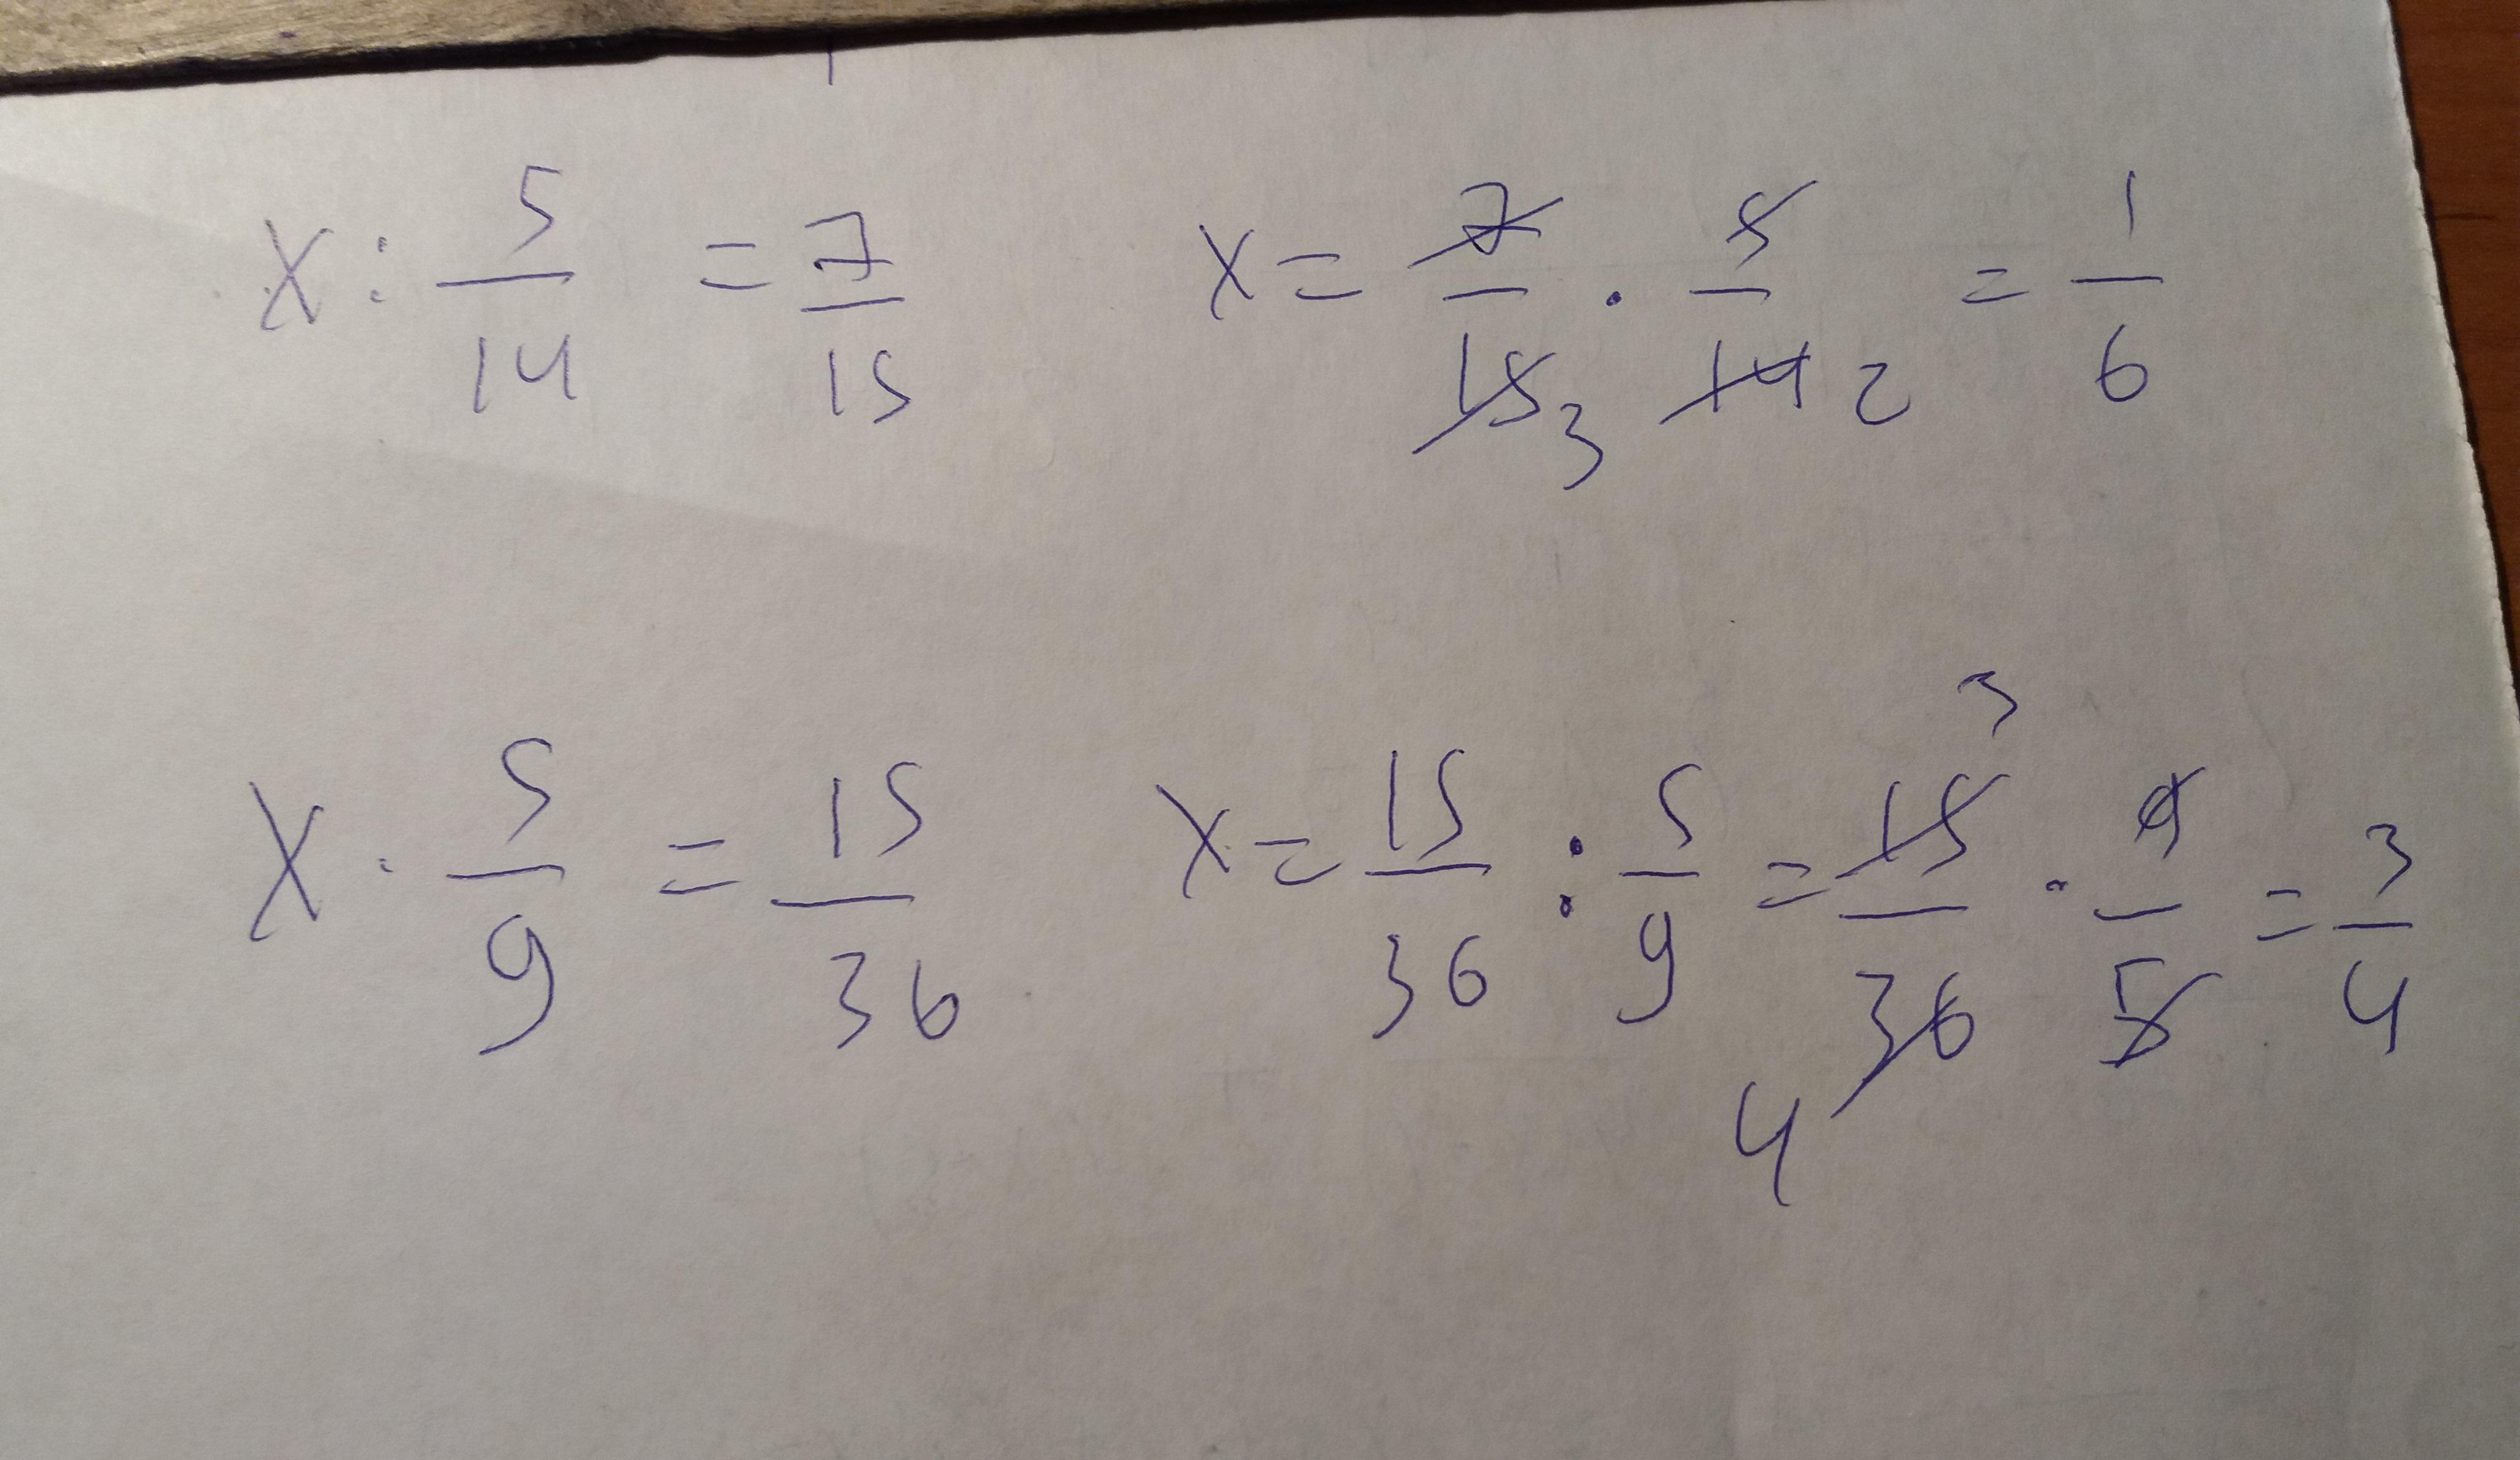 x : 5/14 = 7/15 x = 7/15 3 · 5/14 2 = 1/6
x · 5/9 = 15/36 x = 15/36 : 5/9 = 15 3/36 4 · 9/5 = 3/4